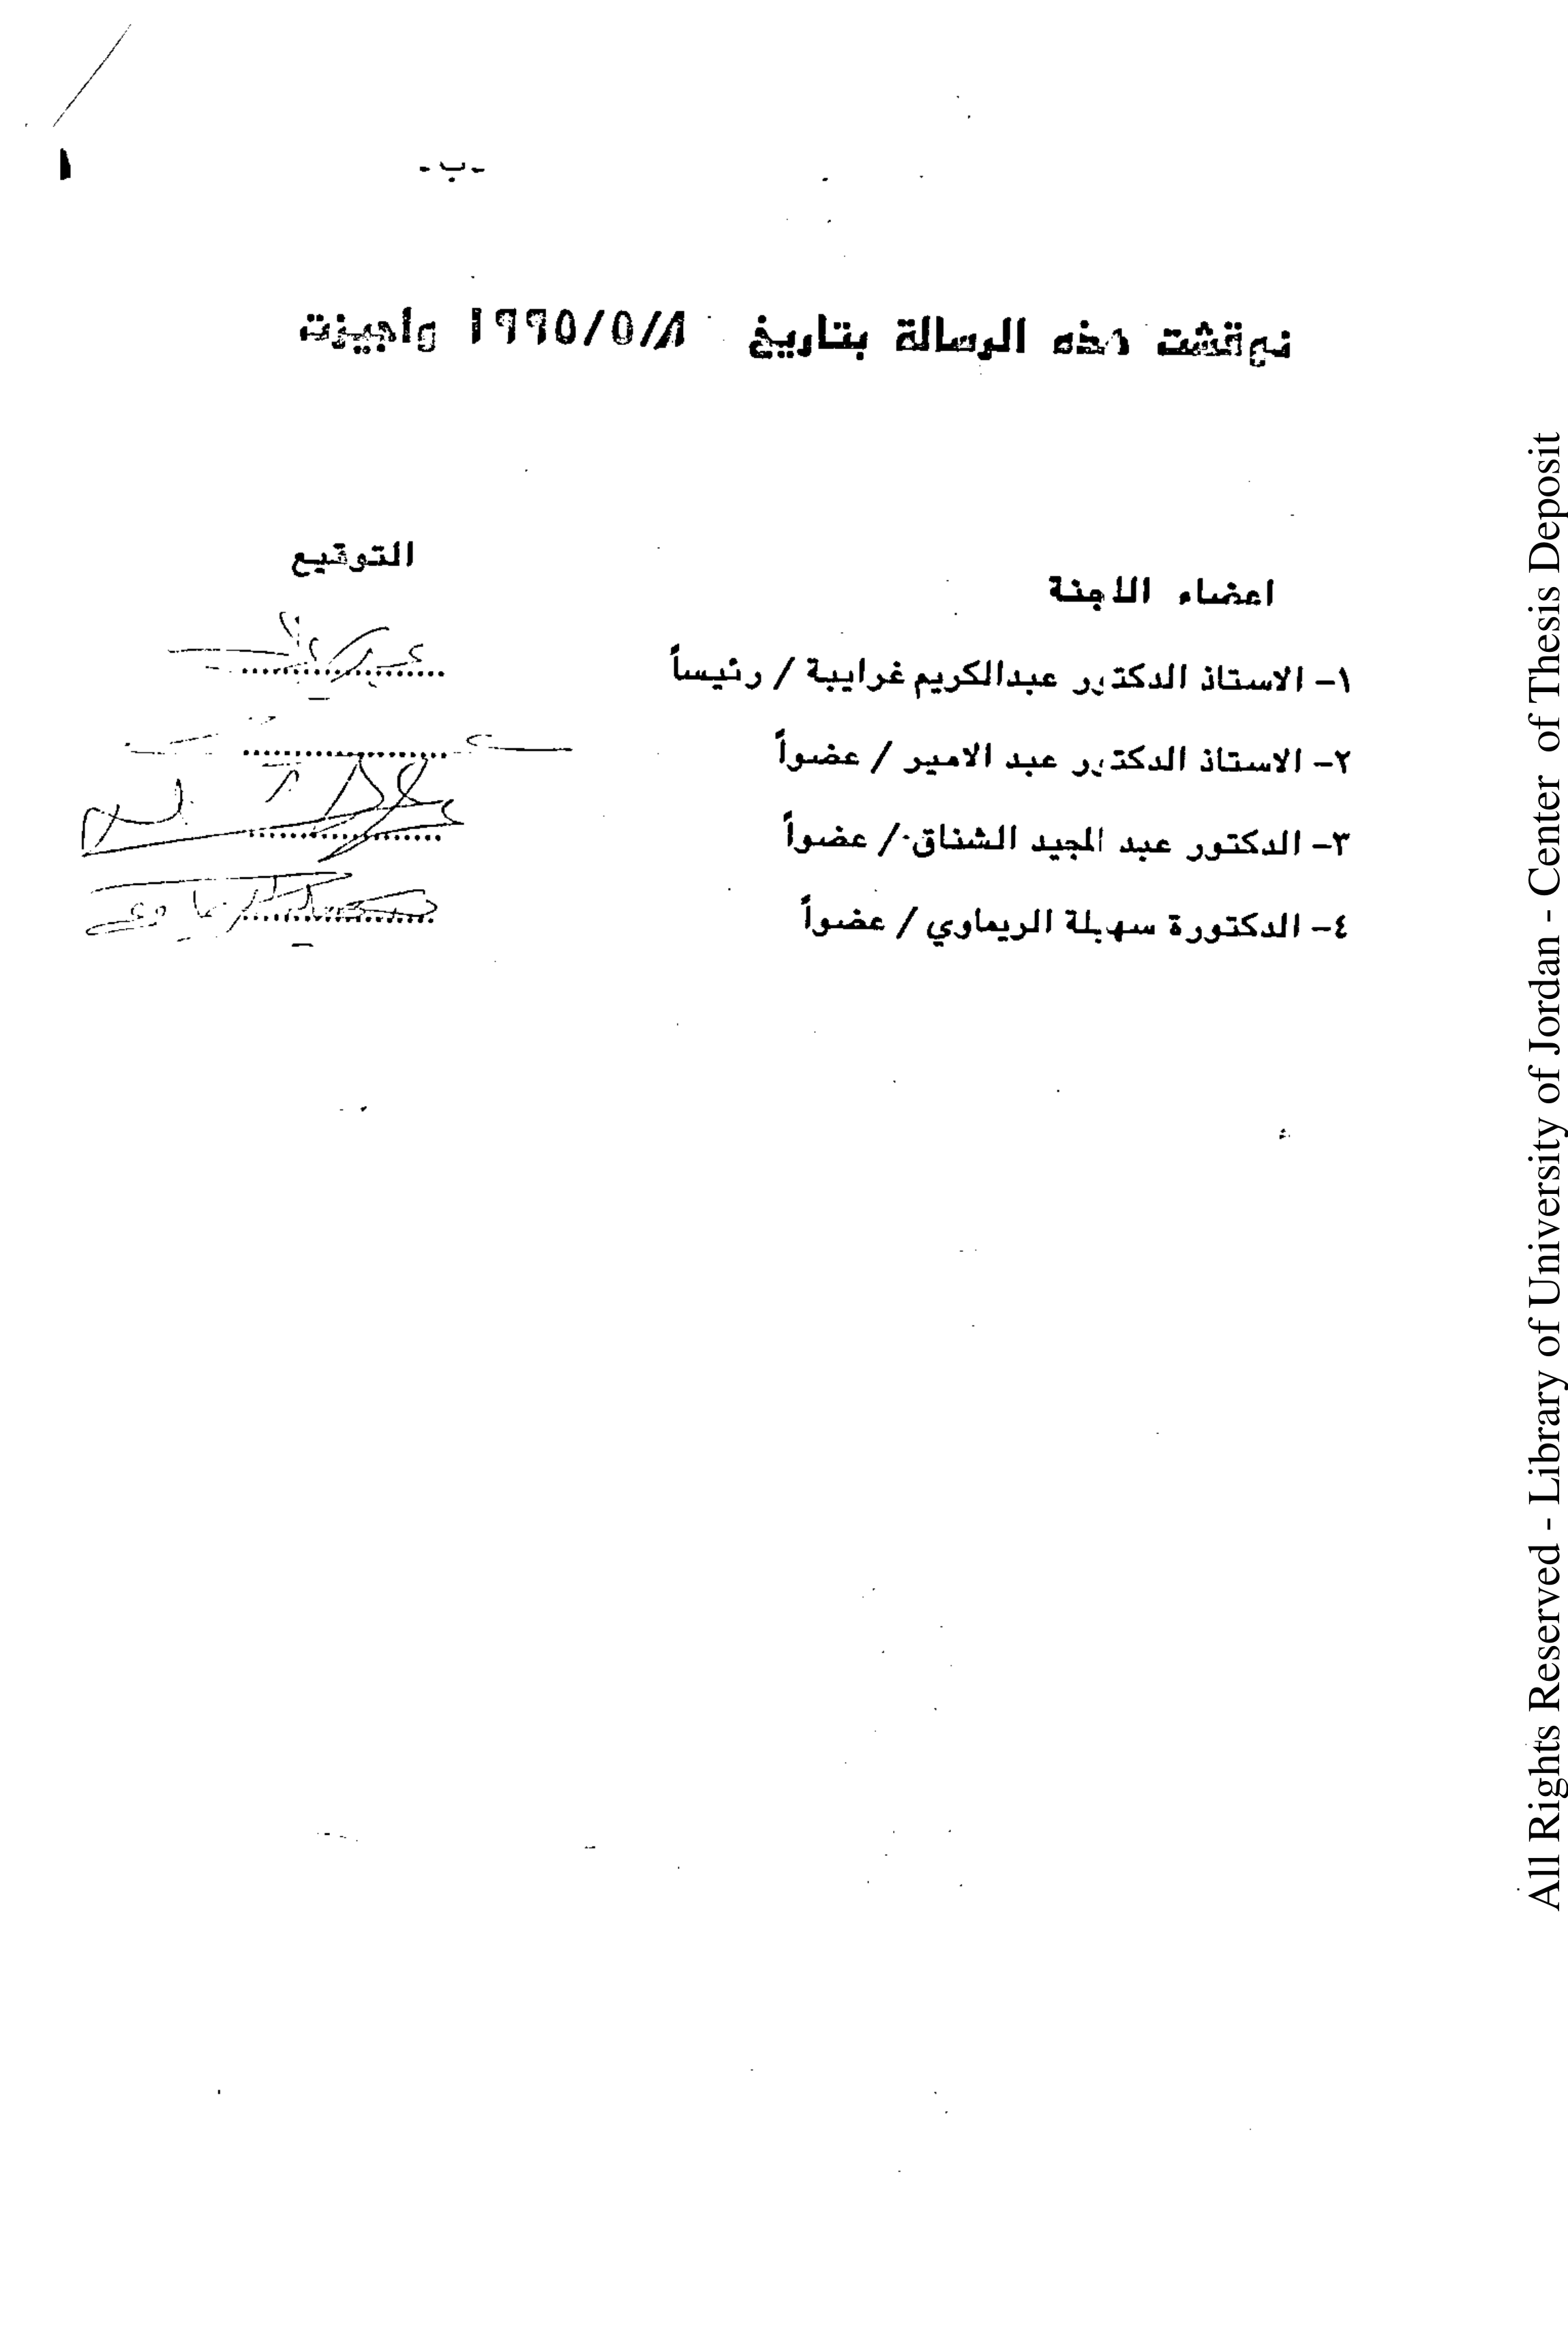 -ب-
نوقشت هذه الرسالة بتاريخ ١٩٩٥/٥/٨ واجيزت
التوقيع
اعضاء اللجنة
١- الاستاذ الدكتور عبدالكريم غرايبة / رئيساً
٢- الاستاذ الدكتور عبد الامير / عضواً
٣- الدكتور عبد المجيد الشناق / عضواً
٤- الدكتورة سهيلة الريماوي / عضواً
All Rights Reserved - Library of University of Jordan - Center of Thesis Deposit